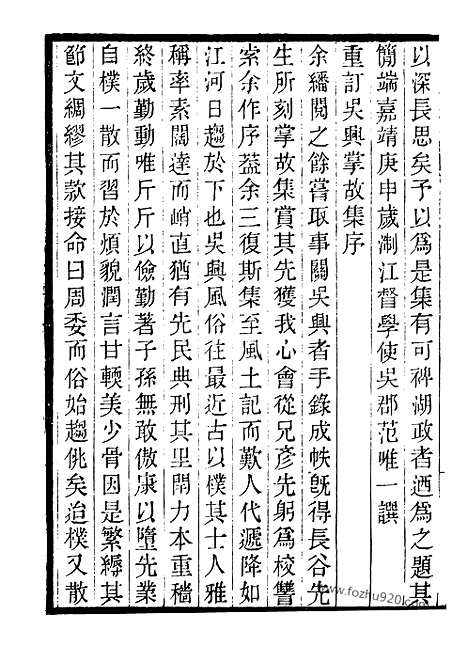 以深長思矣予以爲是集有可裨湖政者迺爲之題其
簡端嘉靖庚申歲淛江督學使吳郡范唯一譔
重訂吳興掌故集序
余繙閲之餘嘗取事關吳興者手錄成帙旣得長谷先
生所刻掌故集賞其先獲我心會從兄彥先躬爲校讐
索余作序葢余三復斯集至風土記而歎人代遞降如
江河日趨於下也吳興風俗往最近古以樸其士人雅
稱率素闊達而峭直猶有先民典刑其里閈力本重穡
終歲勤動唯斤斤以儉勤著子孫無敢傲康以墮先業
自樸一散而習於煩貌潤言甘輭美少骨因是繁縟其
節文綢繆其款接命曰周委而俗始趨佻矣迨樸又散
www.fozhu920.com